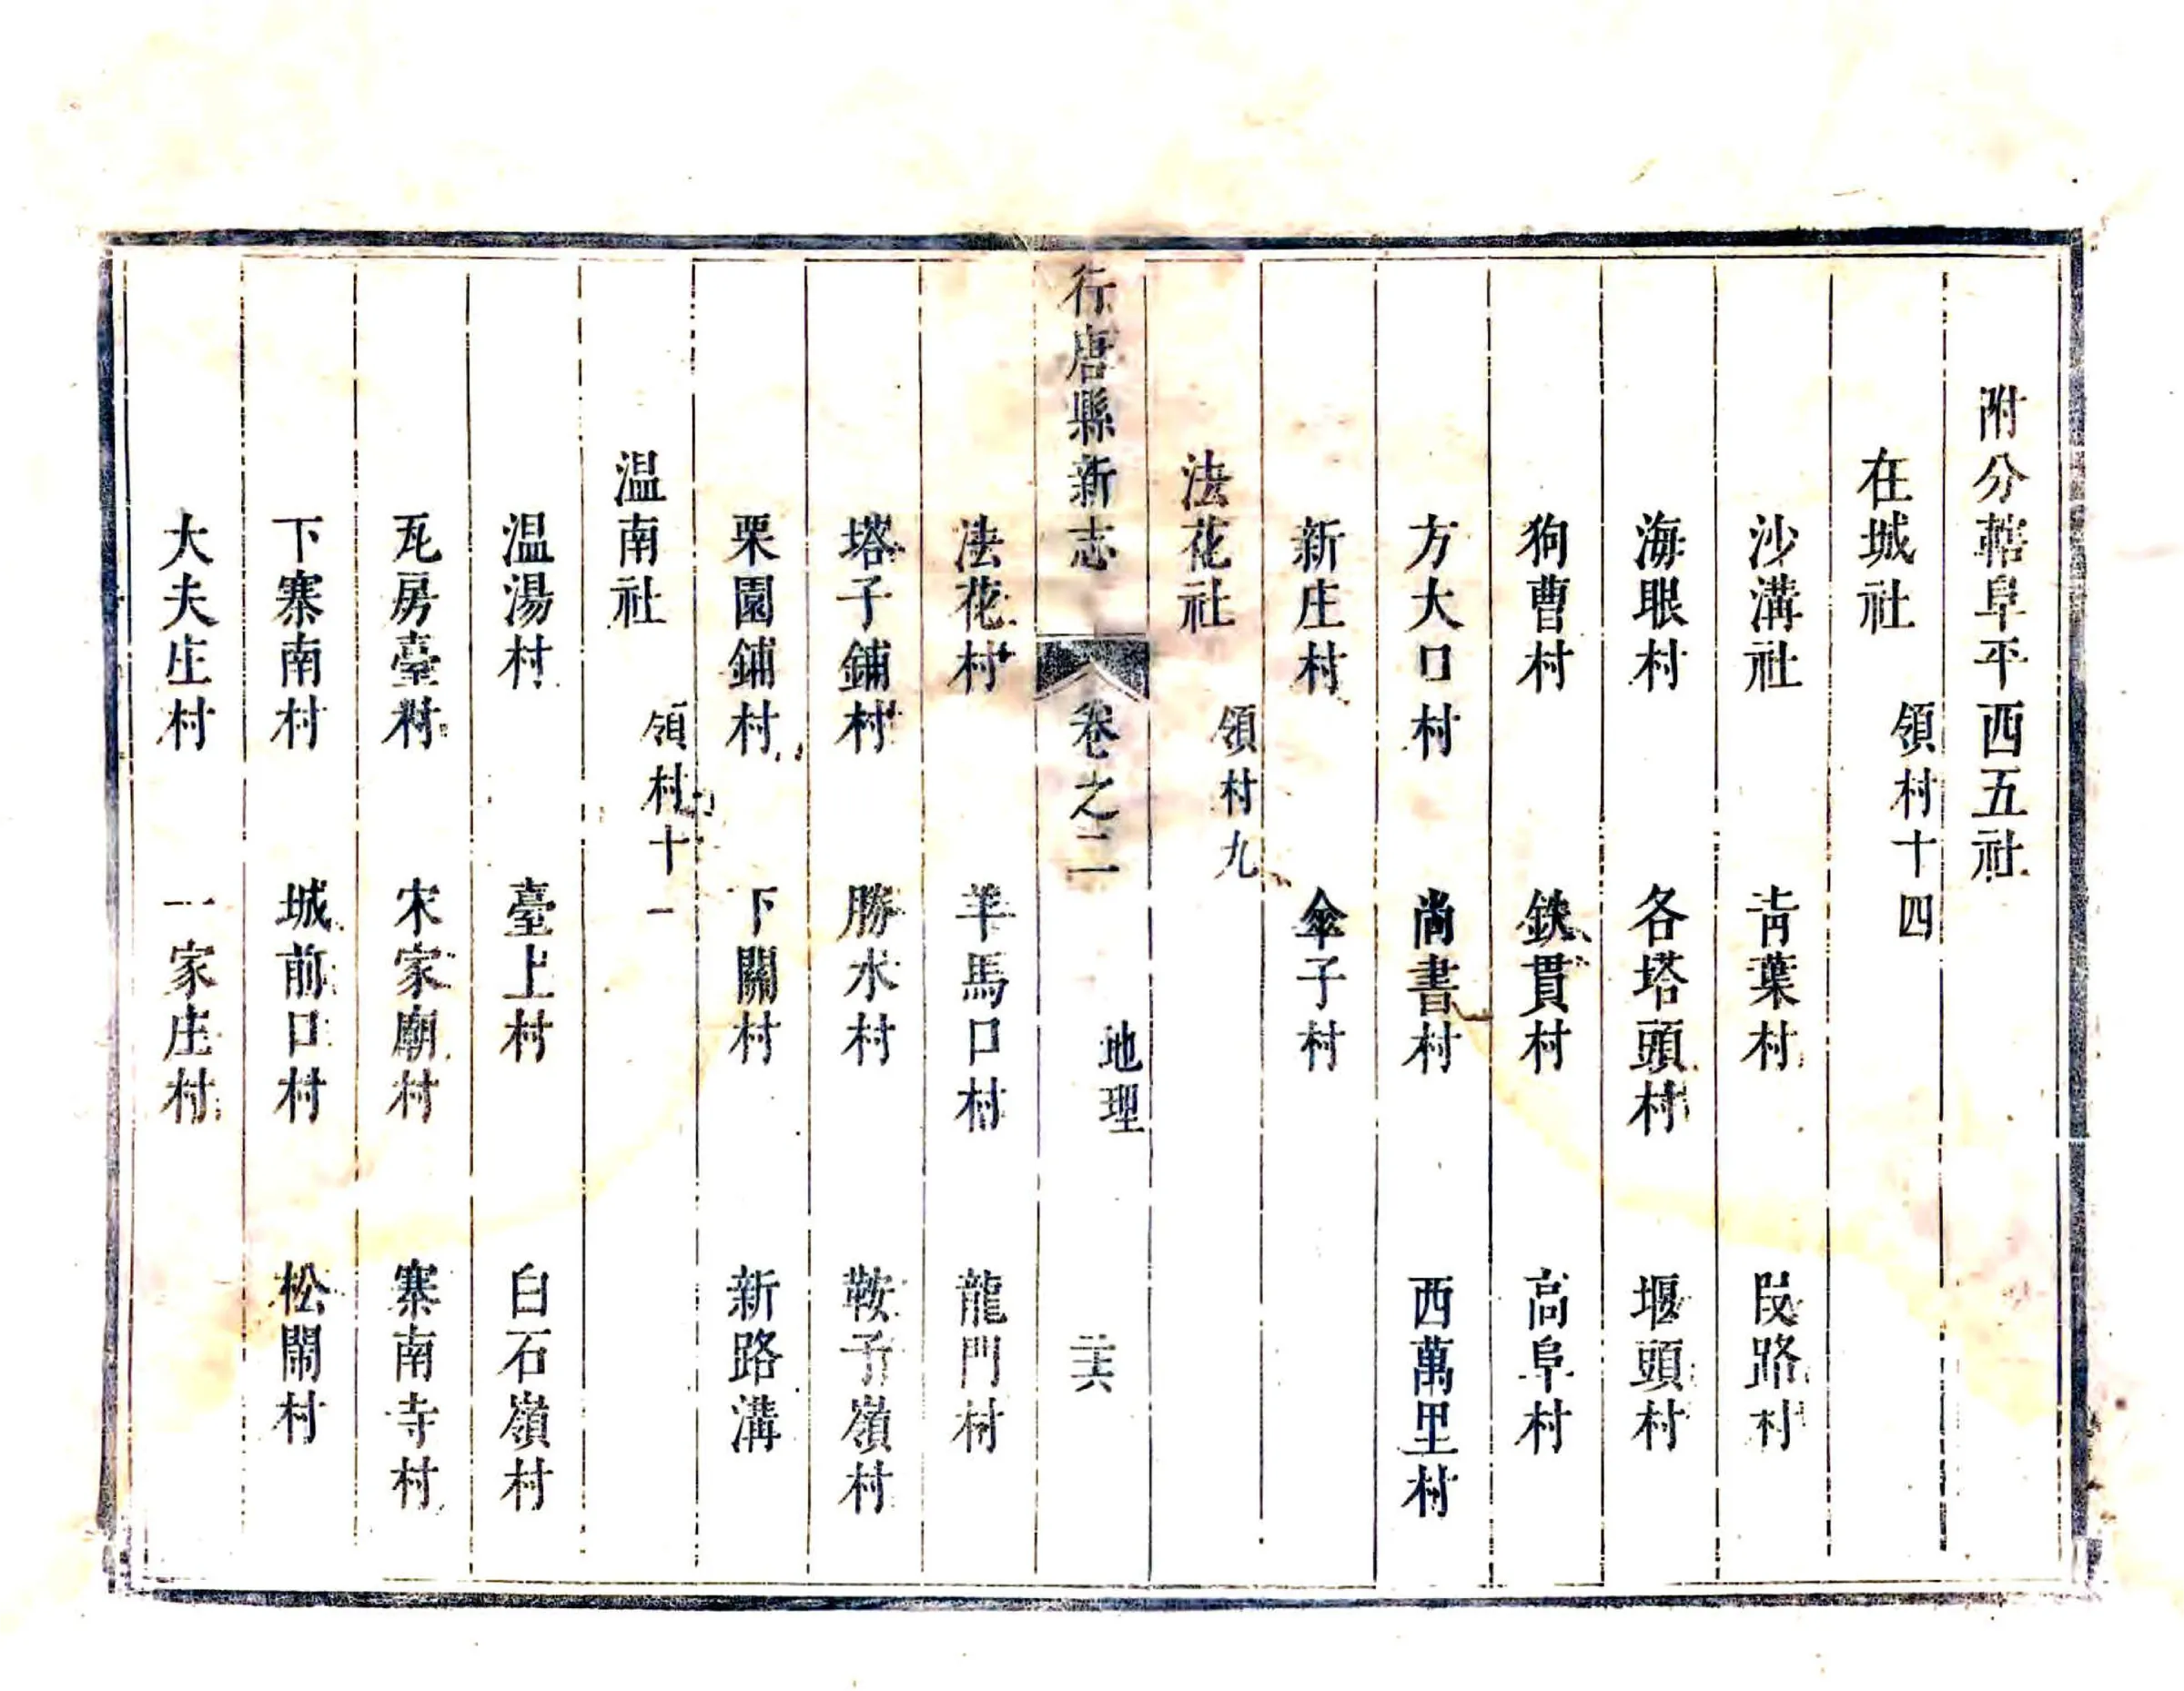 附分轄阜平西五社
在城社 領村十四
沙溝社 青葉村 段路村
海眼村 各塔頭村 堰頭村
狗曹村 鉄貫村 高阜村
方大口村 尚書村 西萬里村
新庄村 傘子村
法花社 領村九
行唐縣新志 卷之二 地理 二十六
法花村 羊馬口村 龍門村
塔子鋪村 勝水村 鞍子嶺村
栗園鋪村 下關村 新路溝
温南社 領村十一
温湯村 臺上村 白石嶺村
瓦房臺村 宋家廟村 寨南寺村
下寨南村 城前口村 松閙村
大夫庄村 一家庄村